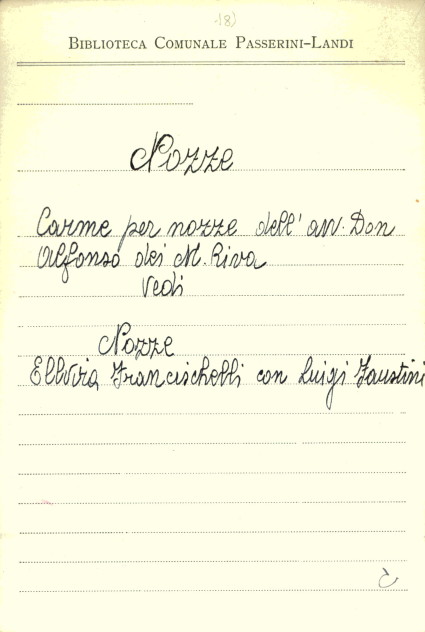 18)
BIBLIOTECA COMUNALE PASSERINI-LANDI
Nozze
Carme per nozze dell' avv. Don
Alfonso dei M. Riva
Vedi
Nozze
Ellviza Francischelli con Luigi Faustini